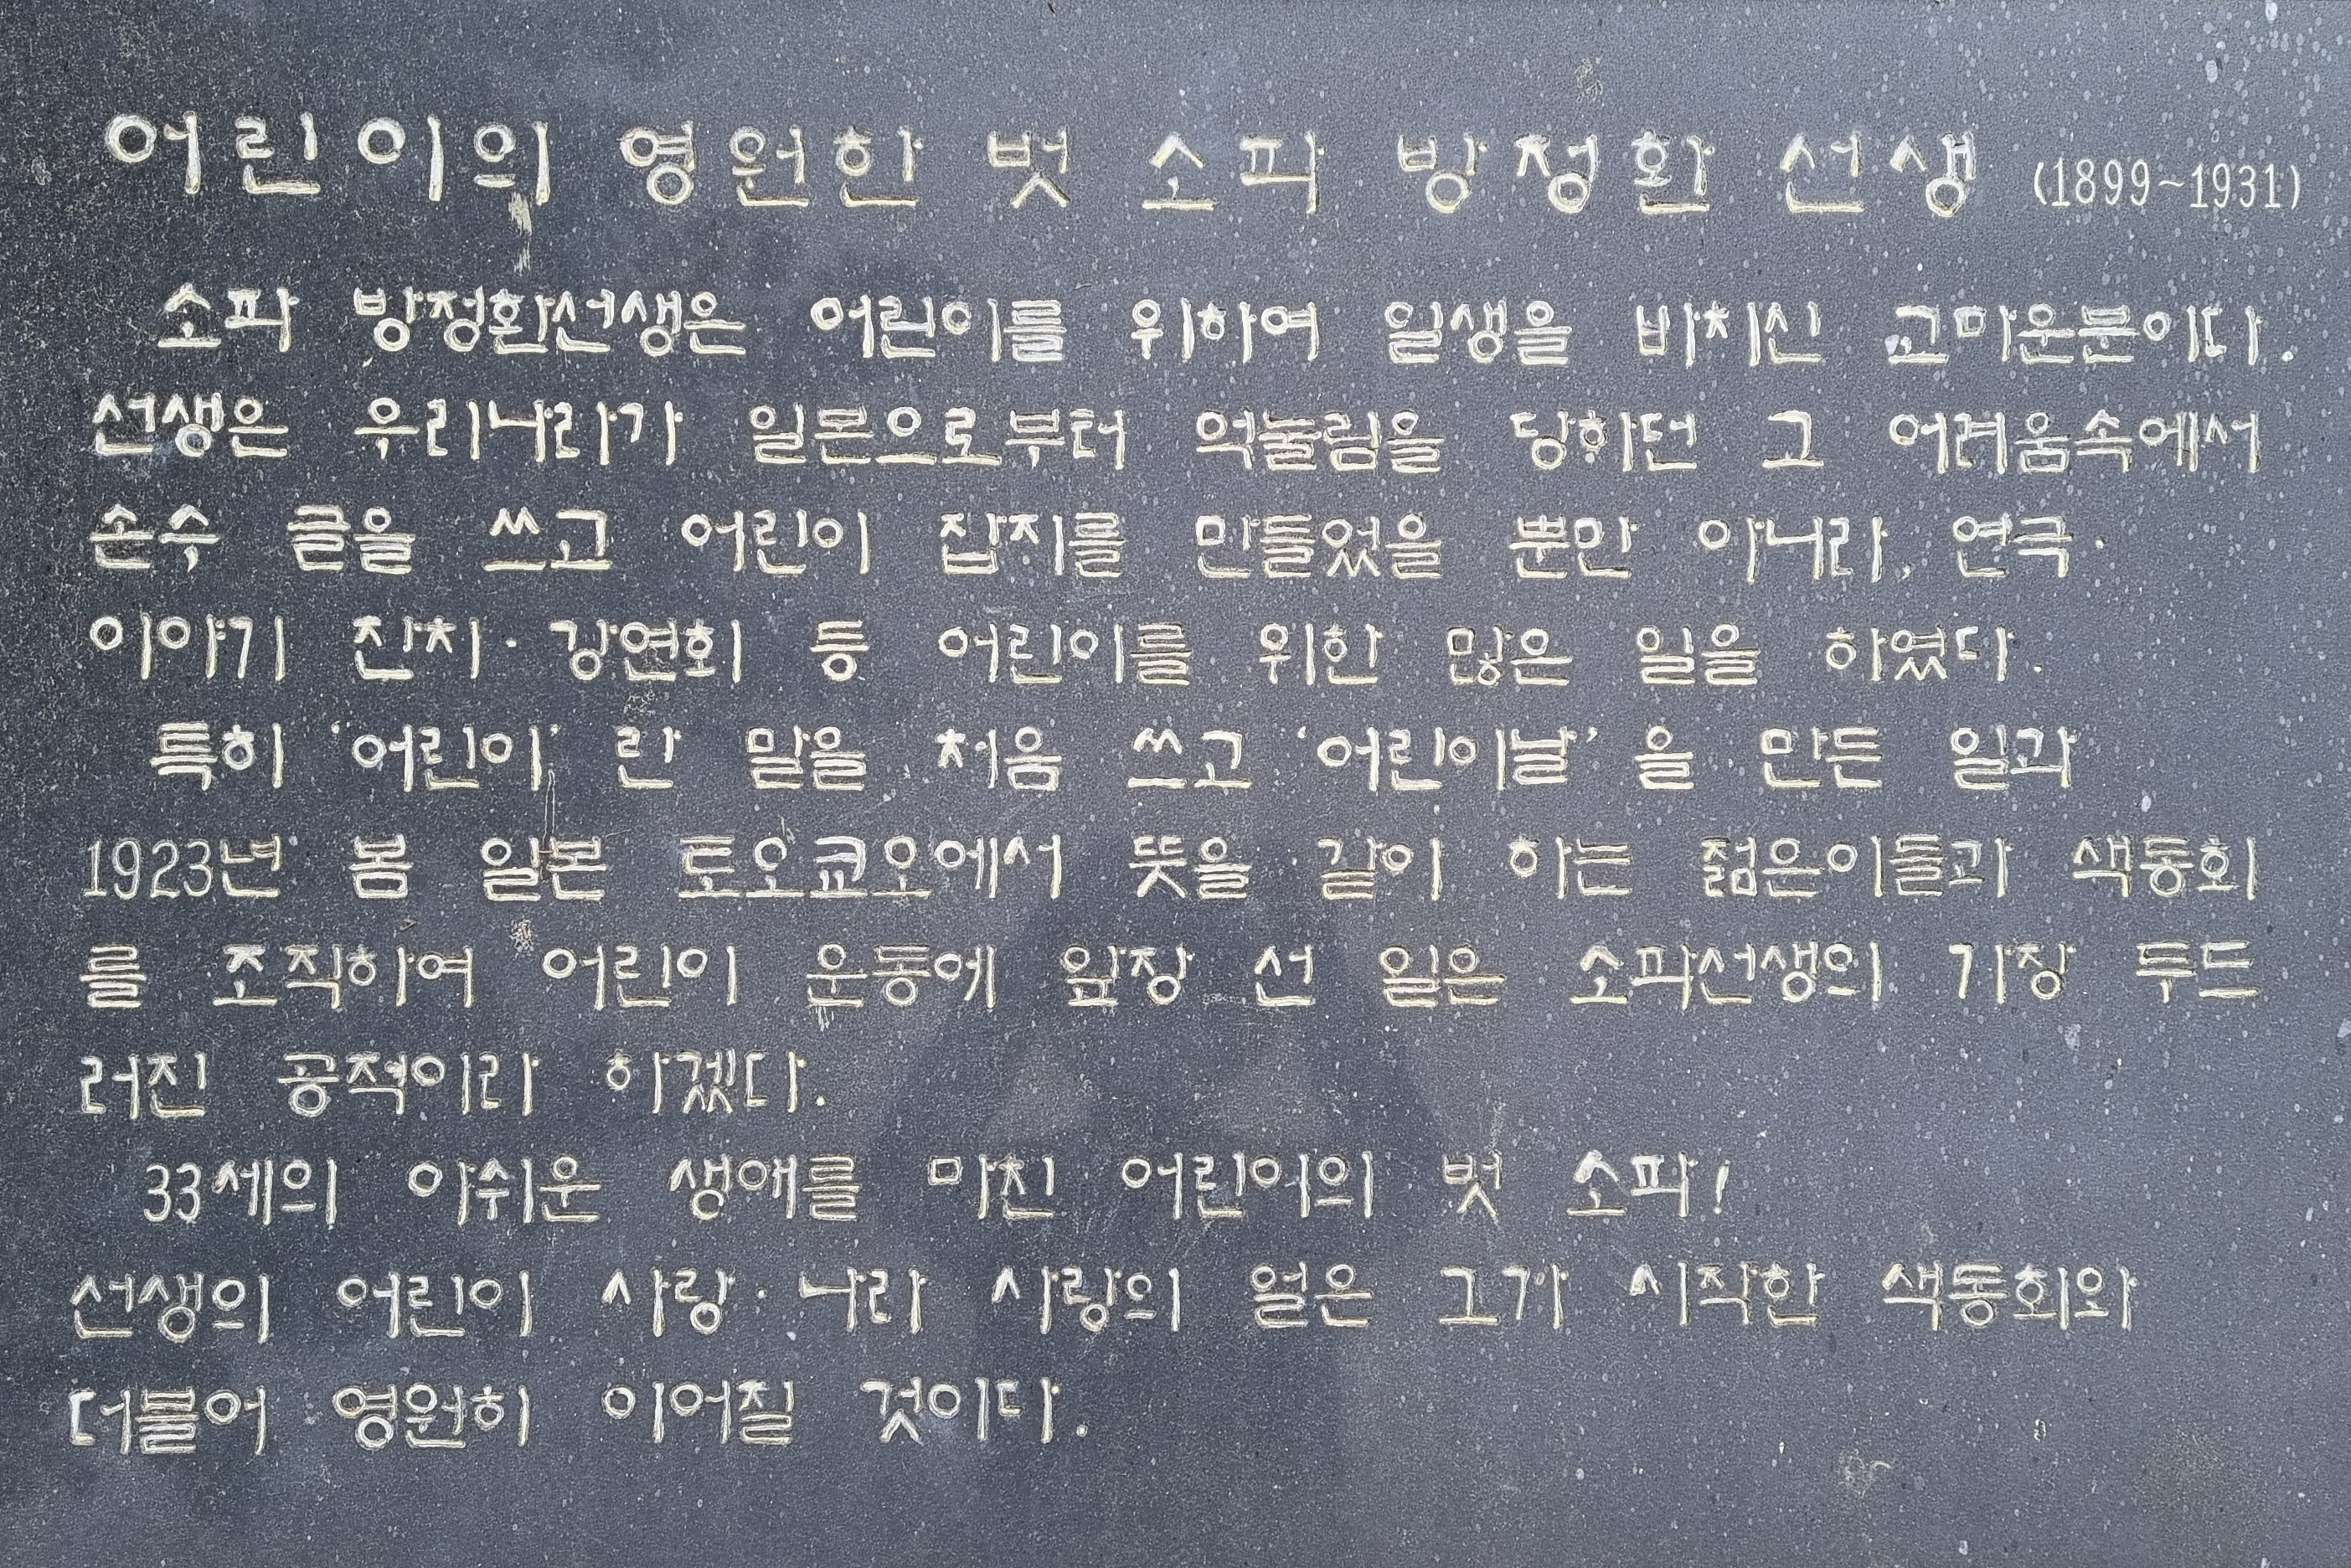 어린이의 영원한 벗 소파 방정환 선생 (1899~1931)
소파 방정환선생은 어린이를 위하여 일생을 바치신 고마운분이다.
선생은 우리나라가 일본으로부터 억눌림을 당하던 그 어려움속에서
손수 글을 쓰고 어린이 잡지를 만들었을 뿐만 아니라, 연극·
이야기 잔치·강연회 등 어린이를 위한 많은 일을 하였다.
특히 '어린이' 란 말을 처음 쓰고 '어린이날' 을 만든 일과
1923년 봄 일본 토오쿄오에서 뜻을 같이 하는 젊은이들과 색동회
를 조직하여 어린이 운동에 앞장 선 일은 소파선생의 가장 두드
러진 공적이라 하겠다.
33세의 아쉬운 생애를 마친 어린이의 벗 소파!
선생의 어린이 사랑·나라 사랑의 얼은 그가 시작한 색동회와
더불어 영원히 이어질 것이다.